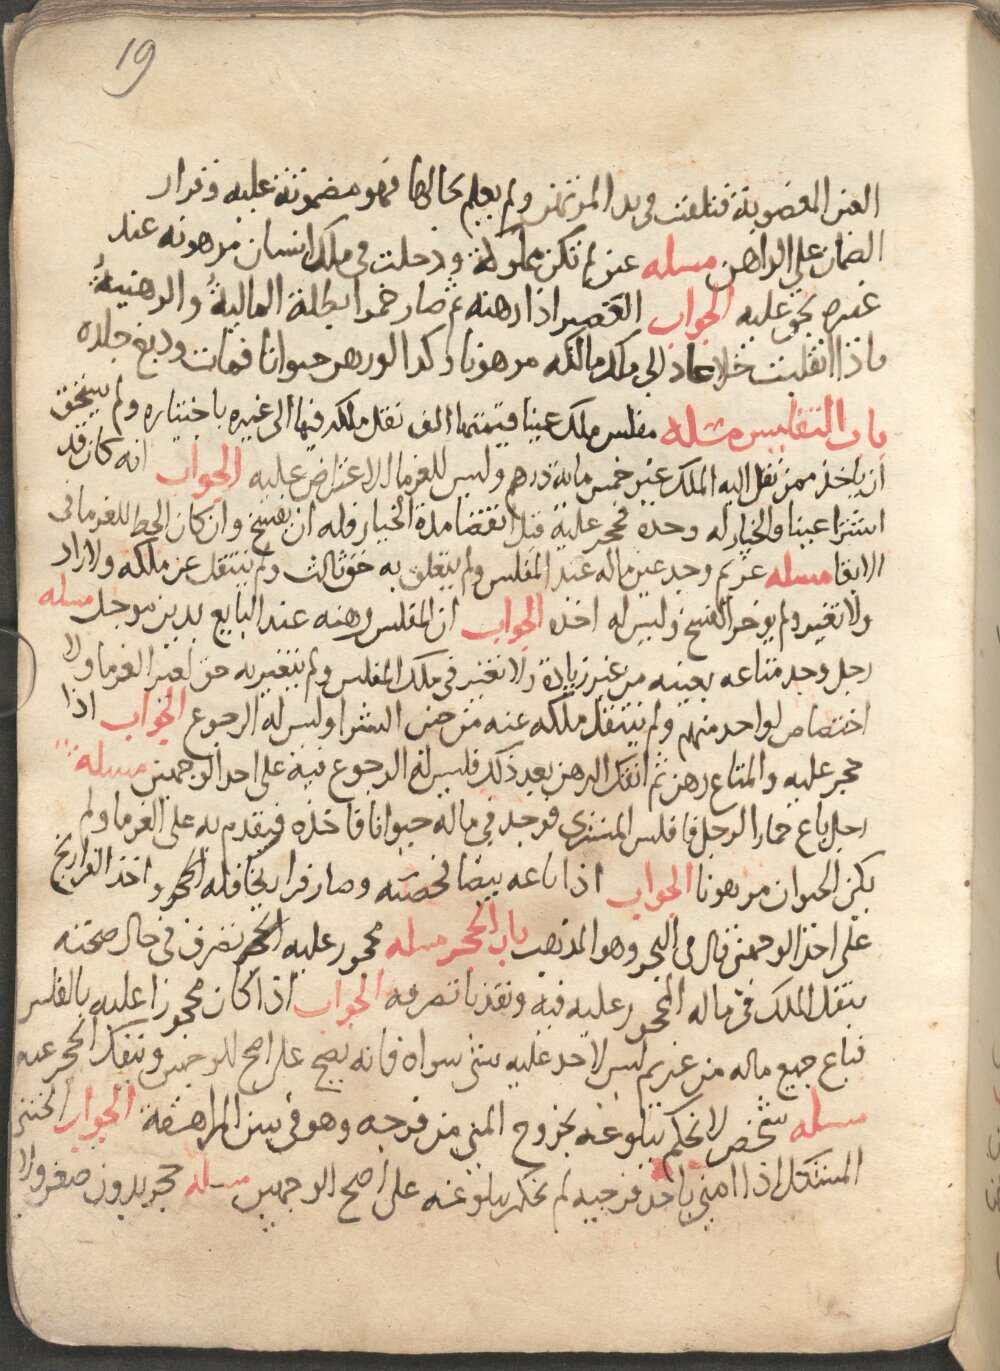 19
العين المغصوبة فتلفت في يد المرتهن ولم يعلم بحالها فهو مضمونة عليه وقرار
الضمان على الراهن مسله عين لم تكن مملوكة ودخلت في ملك انسان مرهونه عند
غيره بحق عليه الجواب العصير اذا رهنه ثم صار خمرا بطلة المالية والرهنية
فاذا انقلبت خلا عاد الى ملك مالكه مرهونا وكذا لو رهن حيوانا فمات ودبغ جلده
باب التفليس مسله مفلس ملك عينا قيمتها الف نقل ملكه فيها الى غيره باختياره ولم يستحق
ان ياخذ ممن نقل اليه الملك غير خمس ماية درهم وليس للغرما الاعتراض عليه الجواب انه كان قد
اشترا عينا والخيار له وحده فحجر عليه قبل انقضا مدة الخيار فله ان يفسخ وان كان الحظ للغرما في
الابقا مسله غريم وجد عين ماله عند المفلس ولم يتعلق به حق ثالث ولم ينتقل عن ملكه ولا زاد
ولا تغير ولم يوخر الفسخ وليس له اخذه الجواب ان المفلس رهنه عند البايع بدين موجل مسله
رجل وجد متاعه بعينه من غير زيادة ولا تغير في ملك المفلس ولم يتغير به حق لغير الغرما ولا
اختصاص لواحد منهم ولم ينتقل ملكه عنه من حين الشرا وليس له الرجوع الجواب اذا
حجر عليه والمتاع رهن ثم انفك الرهن بعد ذلك فليس له الرجوع فيه على احد الوجهين مسلة
رجل باع حمارا لرجل فافلس المشتري فوجد في ماله حيوانا فاخذه فيقدم به على الغرما ولم
يكن الحيوان مرهونا الجواب اذا باعه بيضا فحضنه وصار فراريخا فله الحجر واخذ الفراريخ
على احد الوجهين قال في البحر وهو المذهب باب الحجر مسله محجور عليه الحجر تصرف في حال صحته
ينقل الملك في ماله المحجور عليه فيه ونفذنا تصرفه الجواب اذا كان محجورا عليه بالفلس
فباع جميع ماله من غريم ليس لاحد عليه شي سواه فانه يصح على اصح الوجهين وينفك الحجر عنه
مسله شخص لا نحكم ببلوغه بخروج المني من فرجه وهو في سن المراهقة الجواب الخنثى
المشكل اذا امني باحد فرجيه لم نحكم ببلوغه على اصح الوجهين مسله حجر بدون صغر ولا